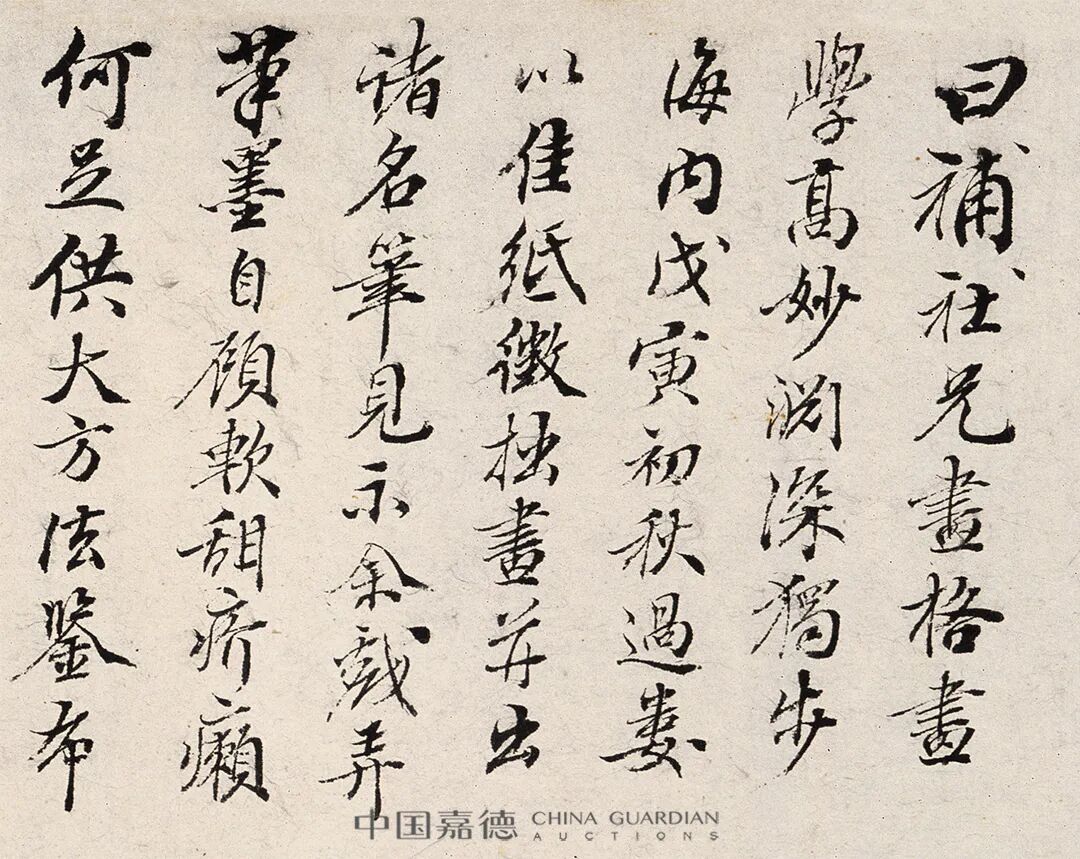 曰補社兄畫格畫
學高妙淵深獨步
海内戊寅初秋過婁
以佳紙徵拙畫并出
諸名筆見示余戲弄
筆墨自顧軟甜疥癩
何足供大方法鑒布
中国嘉德 CHINA GUARDIAN
AUCTIONS